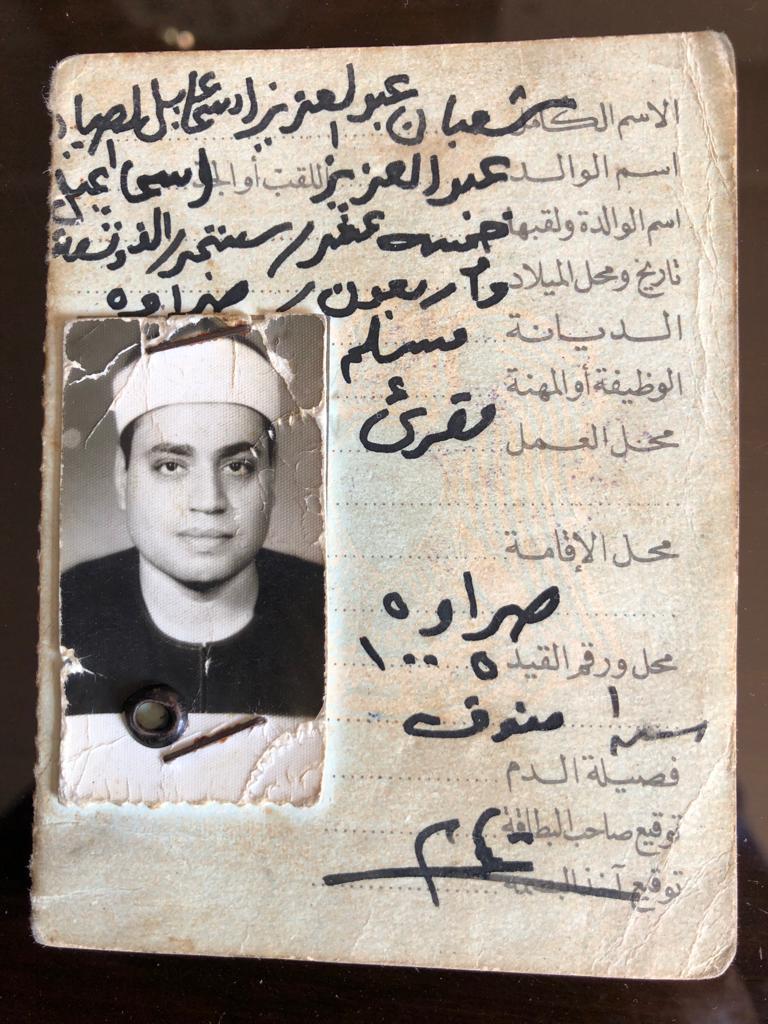 الاسم الكامل شعبان عبد العزيز اسماعيل الصياد
اسم الوالد عبد العزيز اللقب أو الجد اسماعيل
اسم الوالدة ولقبها
تاريخ ومحل الميلاد خمسة عشر / سبتمبر / الف وتسعة
وأربعون / صراوه
الديانة مسلم
الوظيفة أو المهنة
مقرئ
محل العمل
محل الإقامة
صراوه
محل ورقم القيد ١٠٠٥
منوف
فصيلة الدم
توقيع صاحب البطاقة
توقيع آخذ البصمة